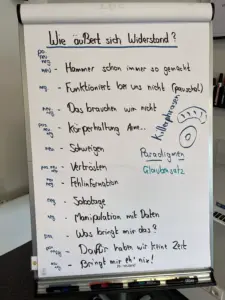 Wie äußert sich Widerstand?
pos.
neu
neg - Hammer schon immer so gemacht
neg - Funktioniert bei uns nicht (pauschal)
neg - Das brauchen wir nicht
pos neg - Körperhaltung Arme..
neu - Schweigen
pos neg - Vertrösten
neg - Fehlinformation
neg - Sabotage
neg - Manipulation mit Daten
pos - Was bringt mir das?
pos neg - Dafür haben wir keine Zeit
neg - Bringt mir eh' nix!
Killerphrasen
Paradigmen
Glaubenssatz